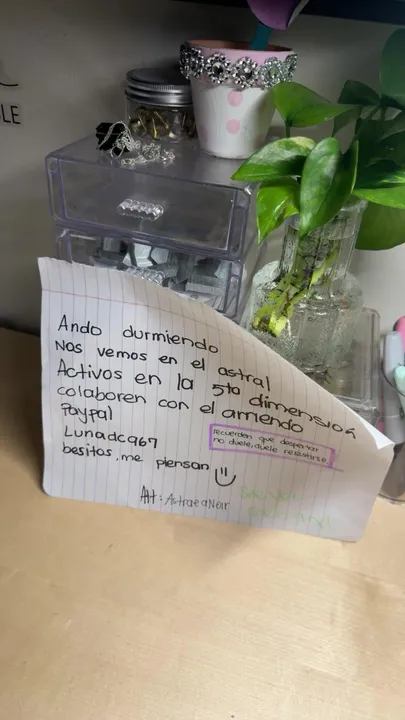 LE
Ando durmiendo
Nos vemos en el astral
Activos en la 5to dimensión
colaboren con el arriendo
Paypal
Lunadca67
recuerden que despertar
no duele, duele resistirse
besitos, me piensan
Att: AstraeaNair